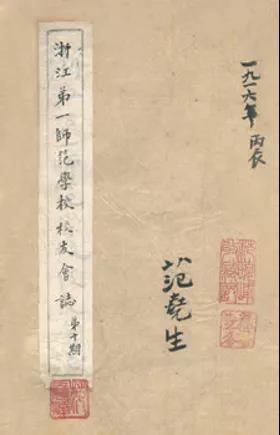 一九一六年 丙辰
范堯生
浙江第一師范學校校友會誌
第十期